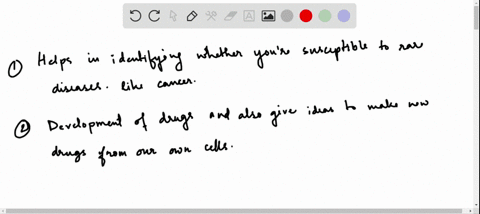 ① Helps in identifying whether you're susceptible to rare
diseases. like cancer.
② Development of drugs and also give ideas to make new
drugs from our own cells.